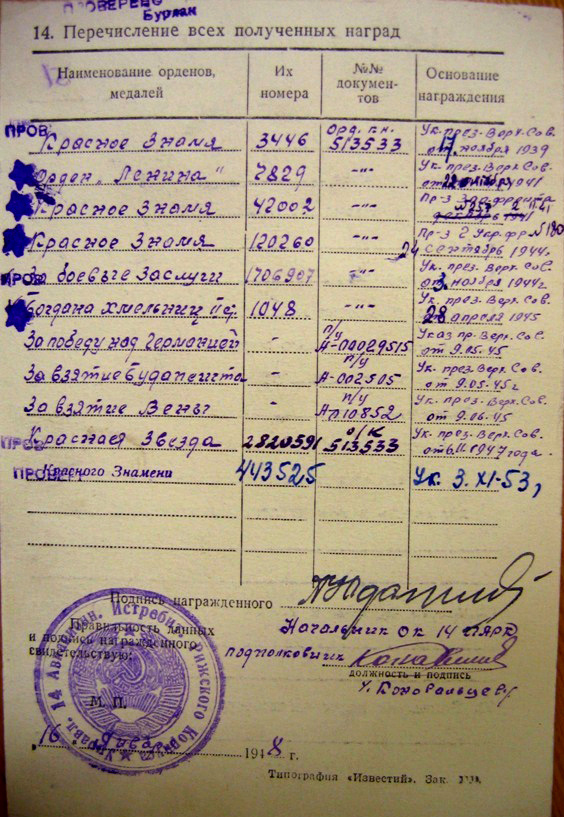 ПРОВЕРЕНО
Бурлак
14. Перечисление всех полученных наград
Наименование орденов, медалей
Их номера
№№ документов
Основание награждения
ПРОВ Красное Знамя 3446 Орд. кн. 513533 Ук. през. Верх. Сов. ноября 1939
Орден „Ленина" 7829 -"- Ук. през. Верх. Сов. 1941
Красное Знамя 42002 -"- 1941
Красное Знамя 120260 -"- Пр-з 2 Укр. фр № 180 24 сентябрь 1944г.
ПРОВ За боевые Заслуги 1706907 -"- Ук. през. Верх. Сов. от 3 ноября 1944г.
Богдана Хмельниц 1048 -"- Ук. през. Верх. Сов. 28 апреля 1945
За победу над Германией - п/у А-00029515 Указ пр. Вер. Сов. от 9.05.45
За взятие Будапешта - п/у А-002505 Ук. през. Верх. Сов. от 9.05.45г
За взятие Вены - п/у Ук. през. Верх. Сов. от 9.06.45
ПРОВ Красная Звезда 2820591 о/к 513533 Ук. през. Верх. Сов. 1947 года.
ПРОВЕР Красного Знамени 443525 Ук. 3.XI-53,
Подпись награжденного
Правильность данных
и подписи награжденного
свидетельствую:
Начальник ОК 14
подполковник
должность и подпись
М. П.
Управл. 14 Авиацион. Истребит. Рижского Корпуса
„16 " января 1948 г.
Типография «Известий». Зак.